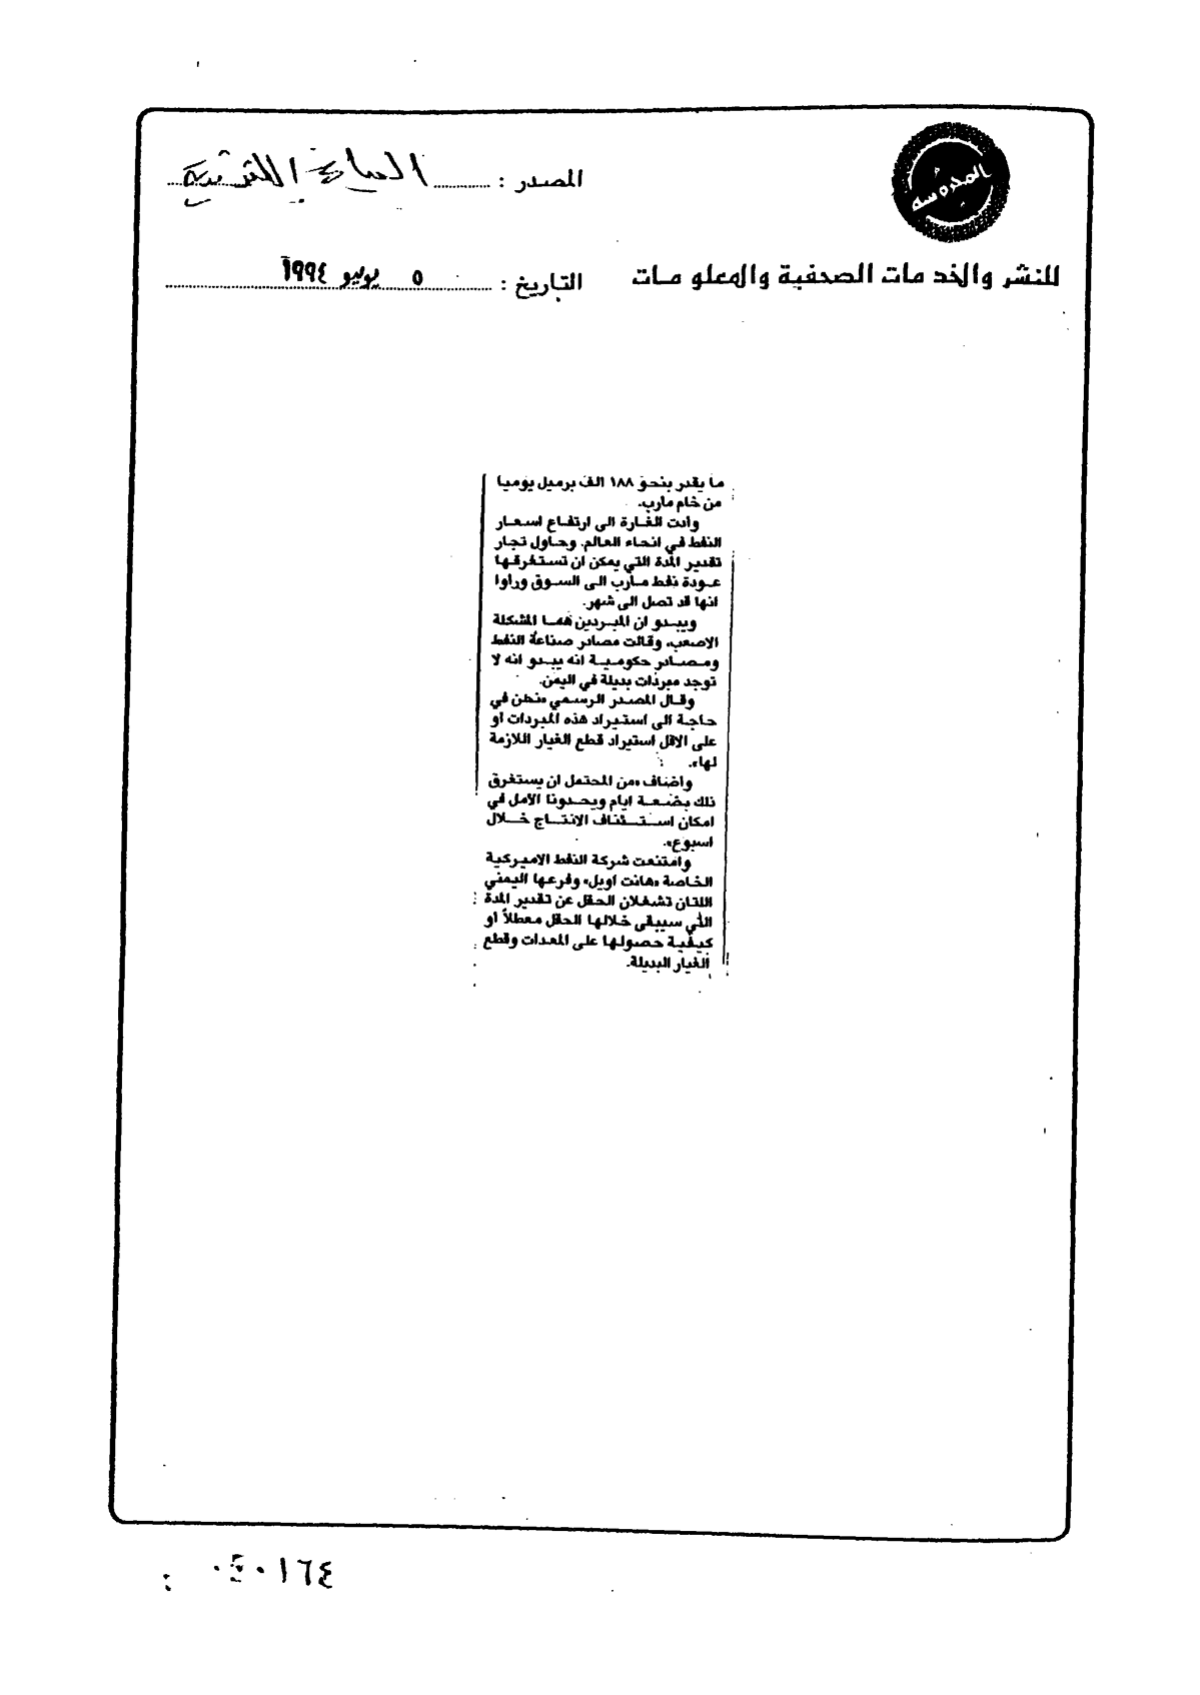 المحروسة
المصدر : الحياة اللندنية
للنشر والخدمات الصحفية والمعلومات
التاريخ : ٥ يوليو ١٩٩٤
ما يقدر بنحو ١٨٨ الف برميل يوميا
من خام مارب.
وادت الغارة الى ارتفاع اسعار
النفط في انحاء العالم. وحاول تجار
تقدير المدة التي يمكن ان تستغرقها
عودة نفط مارب الى السوق وراوا
انها قد تصل الى شهر.
ويبدو ان المبردين هما المشكلة
الاصعب، وقالت مصادر صناعة النفط
ومصادر حكومية انه يبدو انه لا
توجد مبردات بديلة في اليمن.
وقال المصدر الرسمي «نحن في
حاجة الى استيراد هذه المبردات او
على الاقل استيراد قطع الغيار اللازمة
لها».
واضاف «من المحتمل ان يستغرق
ذلك بضعة ايام ويحدونا الامل في
امكان استئناف الانتاج خلال
اسبوع».
وامتنعت شركة النفط الاميركية
الخاصة «هانت اويل» وفرعها اليمني
اللتان تشغلان الحقل عن تقدير المدة
التي سيبقى خلالها الحقل معطلاً او
كيفية حصولها على المعدات وقطع
الغيار البديلة.